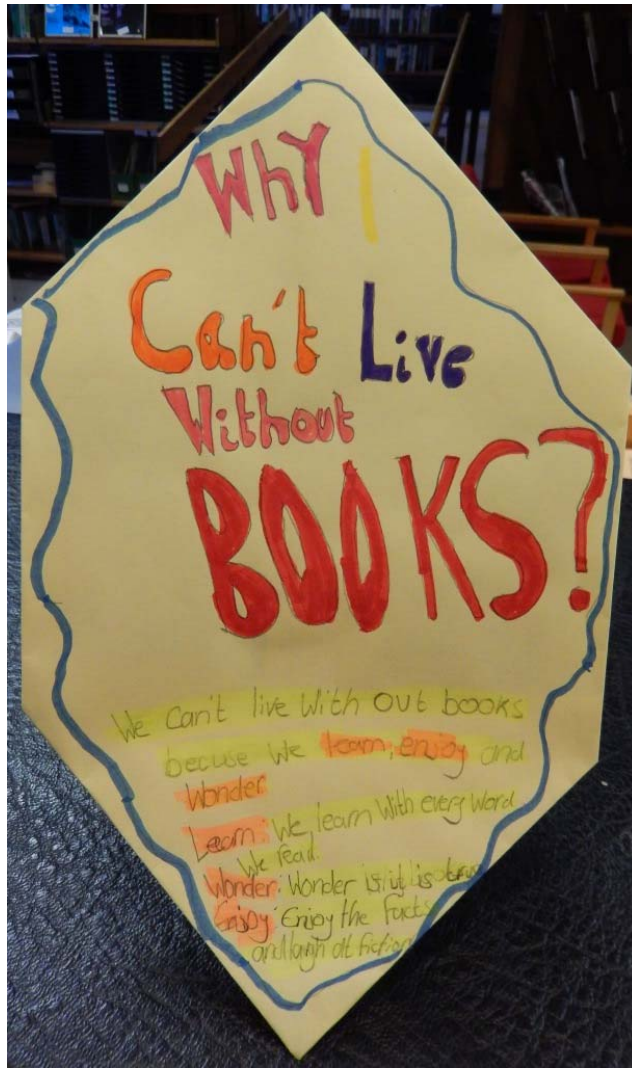 WhY I
Can't Live
Without
BOOKS?
We Can't live With out books
becuse We learn, enjoy and
Wonder
Learn: We learn With every Word
We read.
Wonder: Wonder is it is true
Enjoy: Enjoy the facts
and laugh at fiction